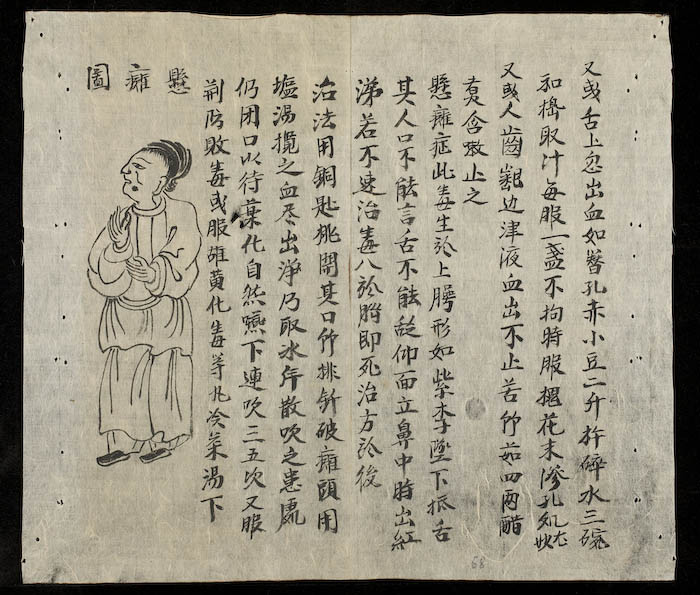 又或舌上忽出血如簪孔赤小豆二升杵碎水三碗
和搗取汁每服一盞不拘時服花末滲孔処尤妙
又或人齒齦边津液血出不止苦竹茹四兩醋
煑含漱止之
懸癰症此毒生於上腭形如紫李墜下抵舌
其人口不能言舌不能仰面立鼻中時出紅
涕若不速治毒入於腦即死治方於後
治法用銅匙挑開其口竹排針破癰頭用
塩湯攪之血尽出淨乃取冰片散吹之患處
仍闭口以待藥化自然嚥下連吹三五次又服
荆防敗毒或服雄黄化毒等丸冷茶湯下
懸癰圖
68